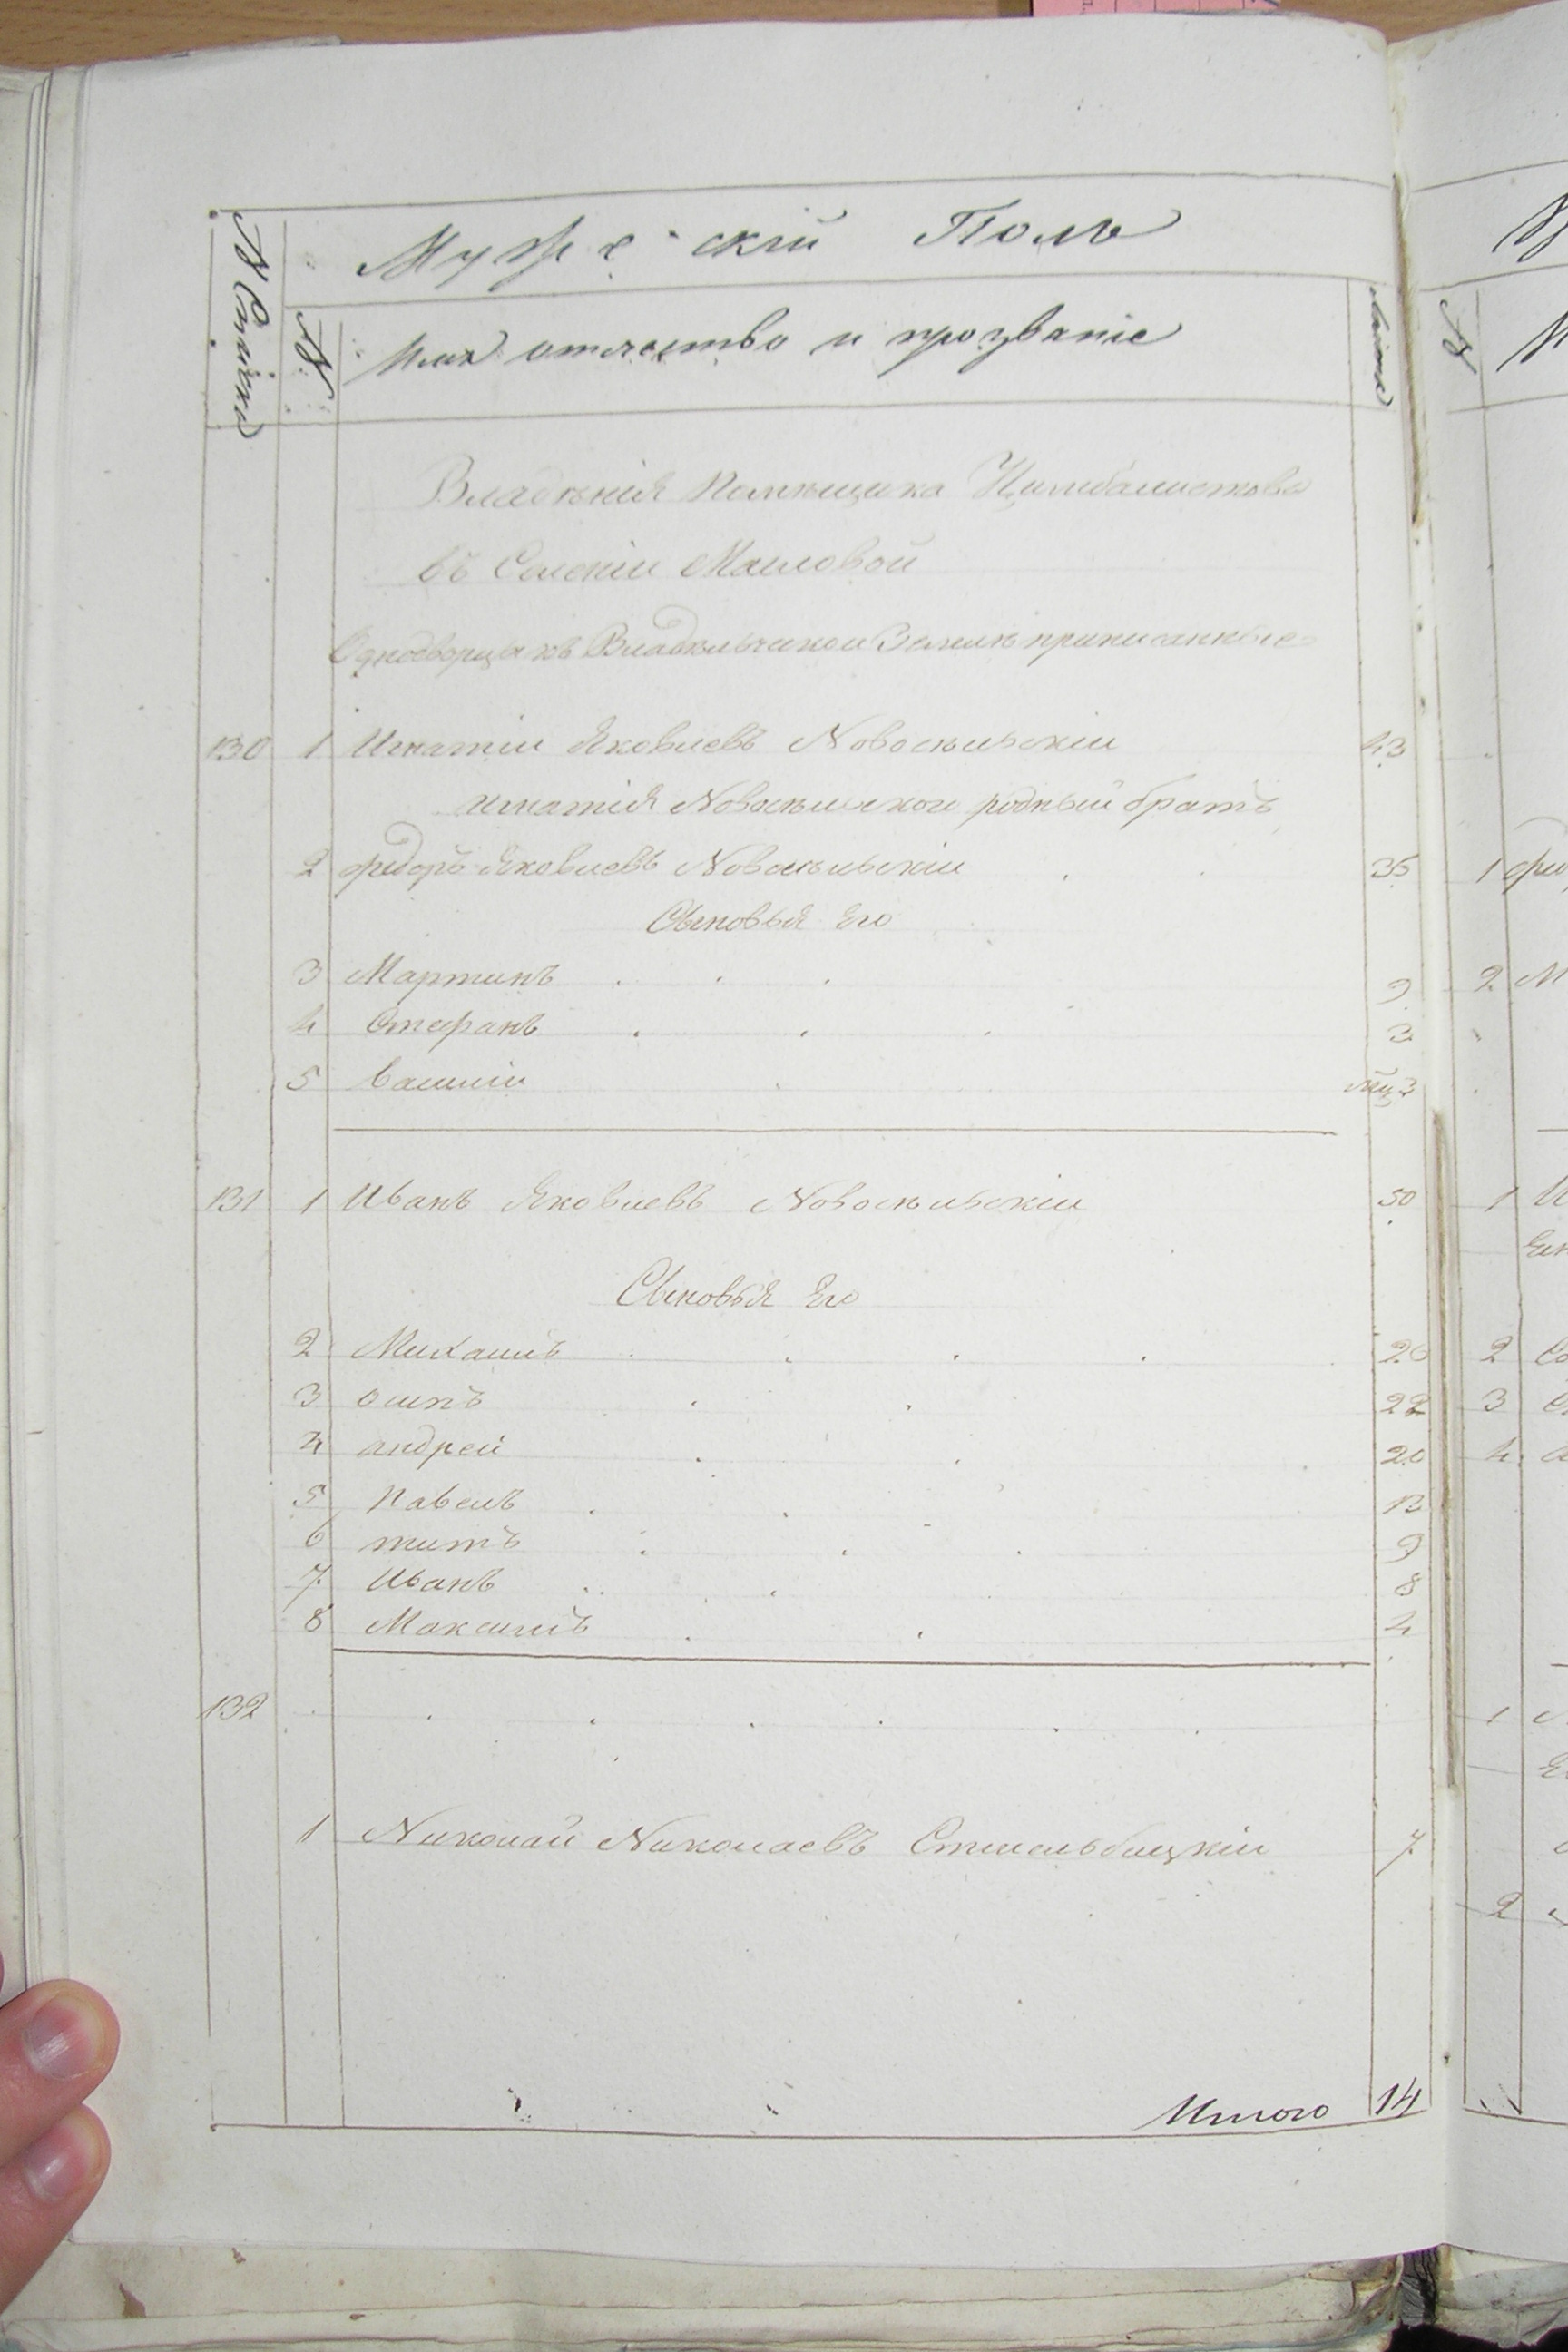 Мужескій Полъ
№ Статьи
№
Имя отчество и прозваніе
Лѣта
Владѣнія Помѣщика
въ Селеніи Маиловой
Однодворцы къ Владѣльческой Землѣ приписанные
130 1 Игнатіи Яковлевъ Новосѣльскіи 43
Игнатія Новосѣльскои родный братъ
2 федоръ Яковлевъ Новосѣльскіи 35
Сыновья Его
3 Мартинъ 9
4 Стефанъ 3
5 василіи мц 3
131 1 Иванъ Яковлевъ Новосѣльскіи 50
Сыновья Его
2 Михаилъ 26
3 осипъ 22
4 андреи 20
5 Павелъ 13
6 титъ 9
7 Иванъ 8
8 Максимъ 4
132
1 Николай Николаевъ 7
Итого 14